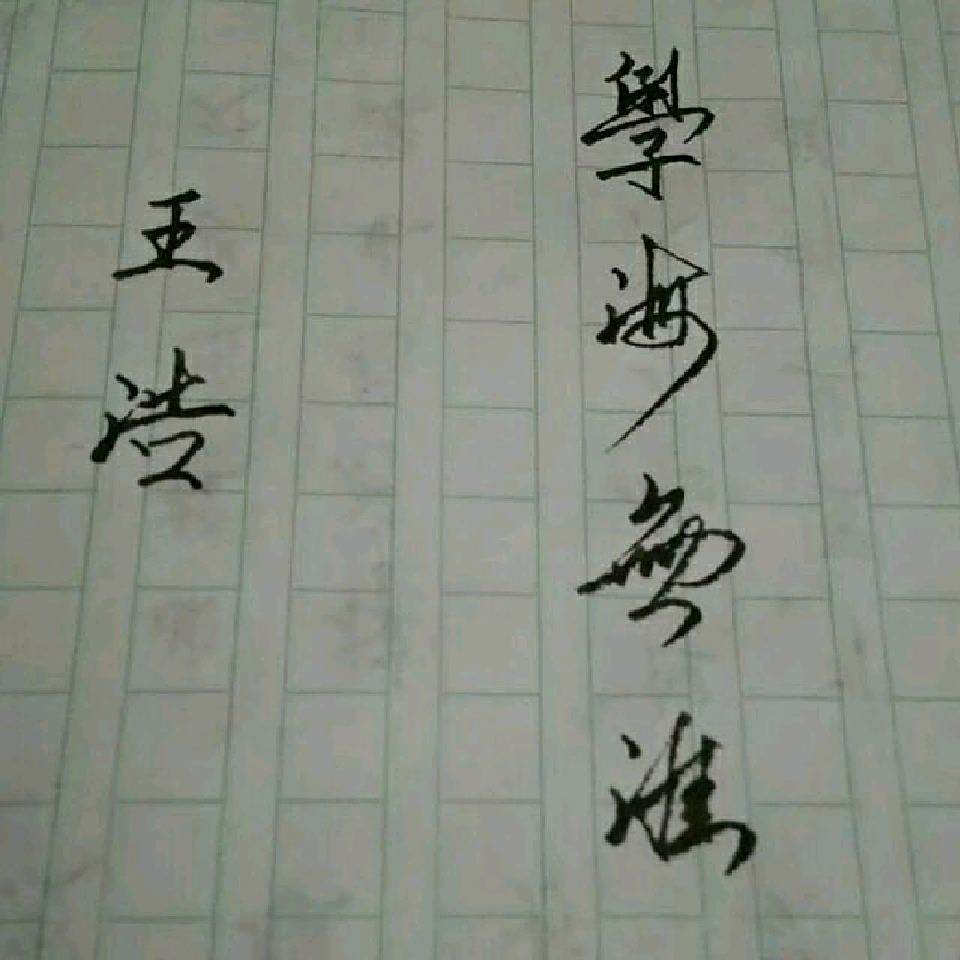 學海無涯
王浩